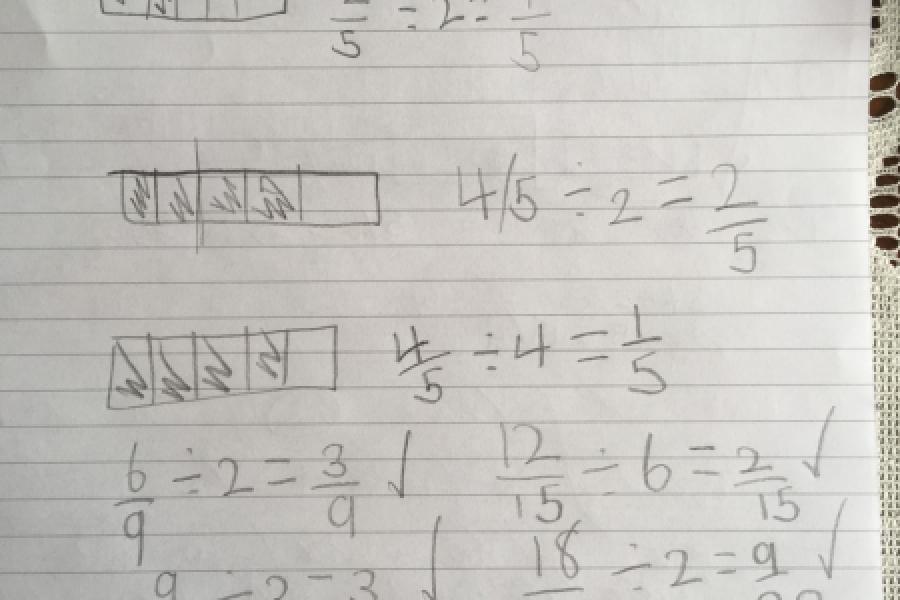 5 ÷ 2 = 5
4/5 ÷ 2 = 2/5
4/5 ÷ 4 = 1/5
6/9 ÷ 2 = 3/9 ✓ 12/15 ÷ 6 = 2/15 ✓
9 ÷ 3 ✓ 18 ÷ 2 = 9 ✓